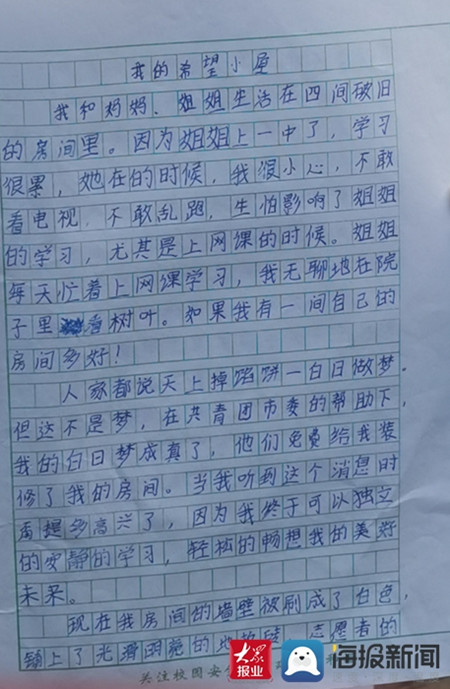 我的希望小屋
我和妈妈、姐姐生活在四间破旧
的房间里。因为姐姐上一中了，学习
很累，她在的时候，我很小心，不敢
看电视，不敢乱跑，生怕影响了姐姐
的学习，尤其是上网课的时候。姐姐
每天忙着上网课学习，我无聊地在院
子里看树叶。如果我有一间自己的
房间多好！
人家都说天上掉馅饼一白日做梦。
但这不是梦，在共青团市委的帮助下，
我的白日梦成真了，他们免费给我装
修了我的房间。当我听到这个消息时
甭提多高兴了，因为我终于可以独立
的安静的学习，轻松的畅想我的美好
未来。
现在我房间的墙壁被刷成了白色，
铺上了光滑明亮的地 志愿者的
关注校园安
大众报业 海报新闻